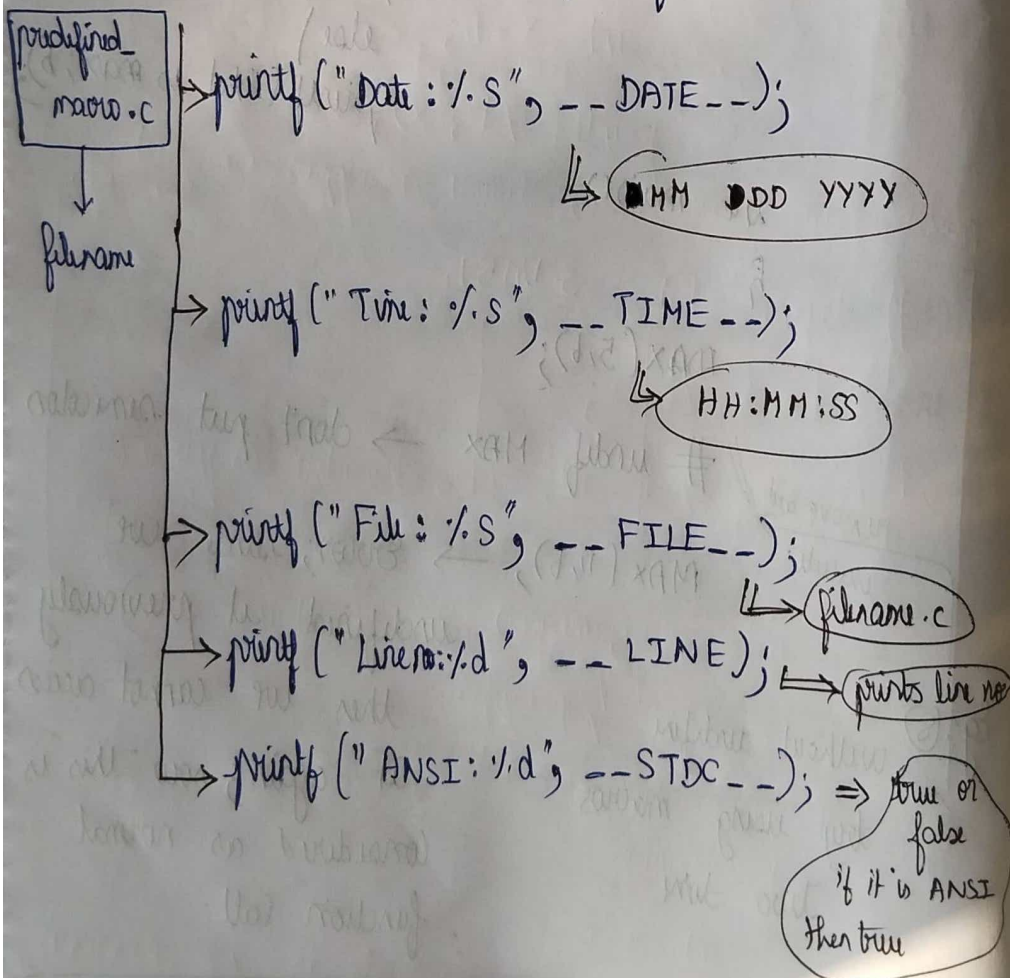 predefined_
macro.c
filename
printf ("Date : %s", __DATE__);
MM DD YYYY
printf ("Time: %s", __TIME__);
HH:MM:SS
printf ("File: %s", __FILE__);
filename.c
printf ("Line no:%d", __LINE);
prints line no
printf ("ANSI: %d", __STDC__); ⇒ true or
false
if it is ANSI
then true